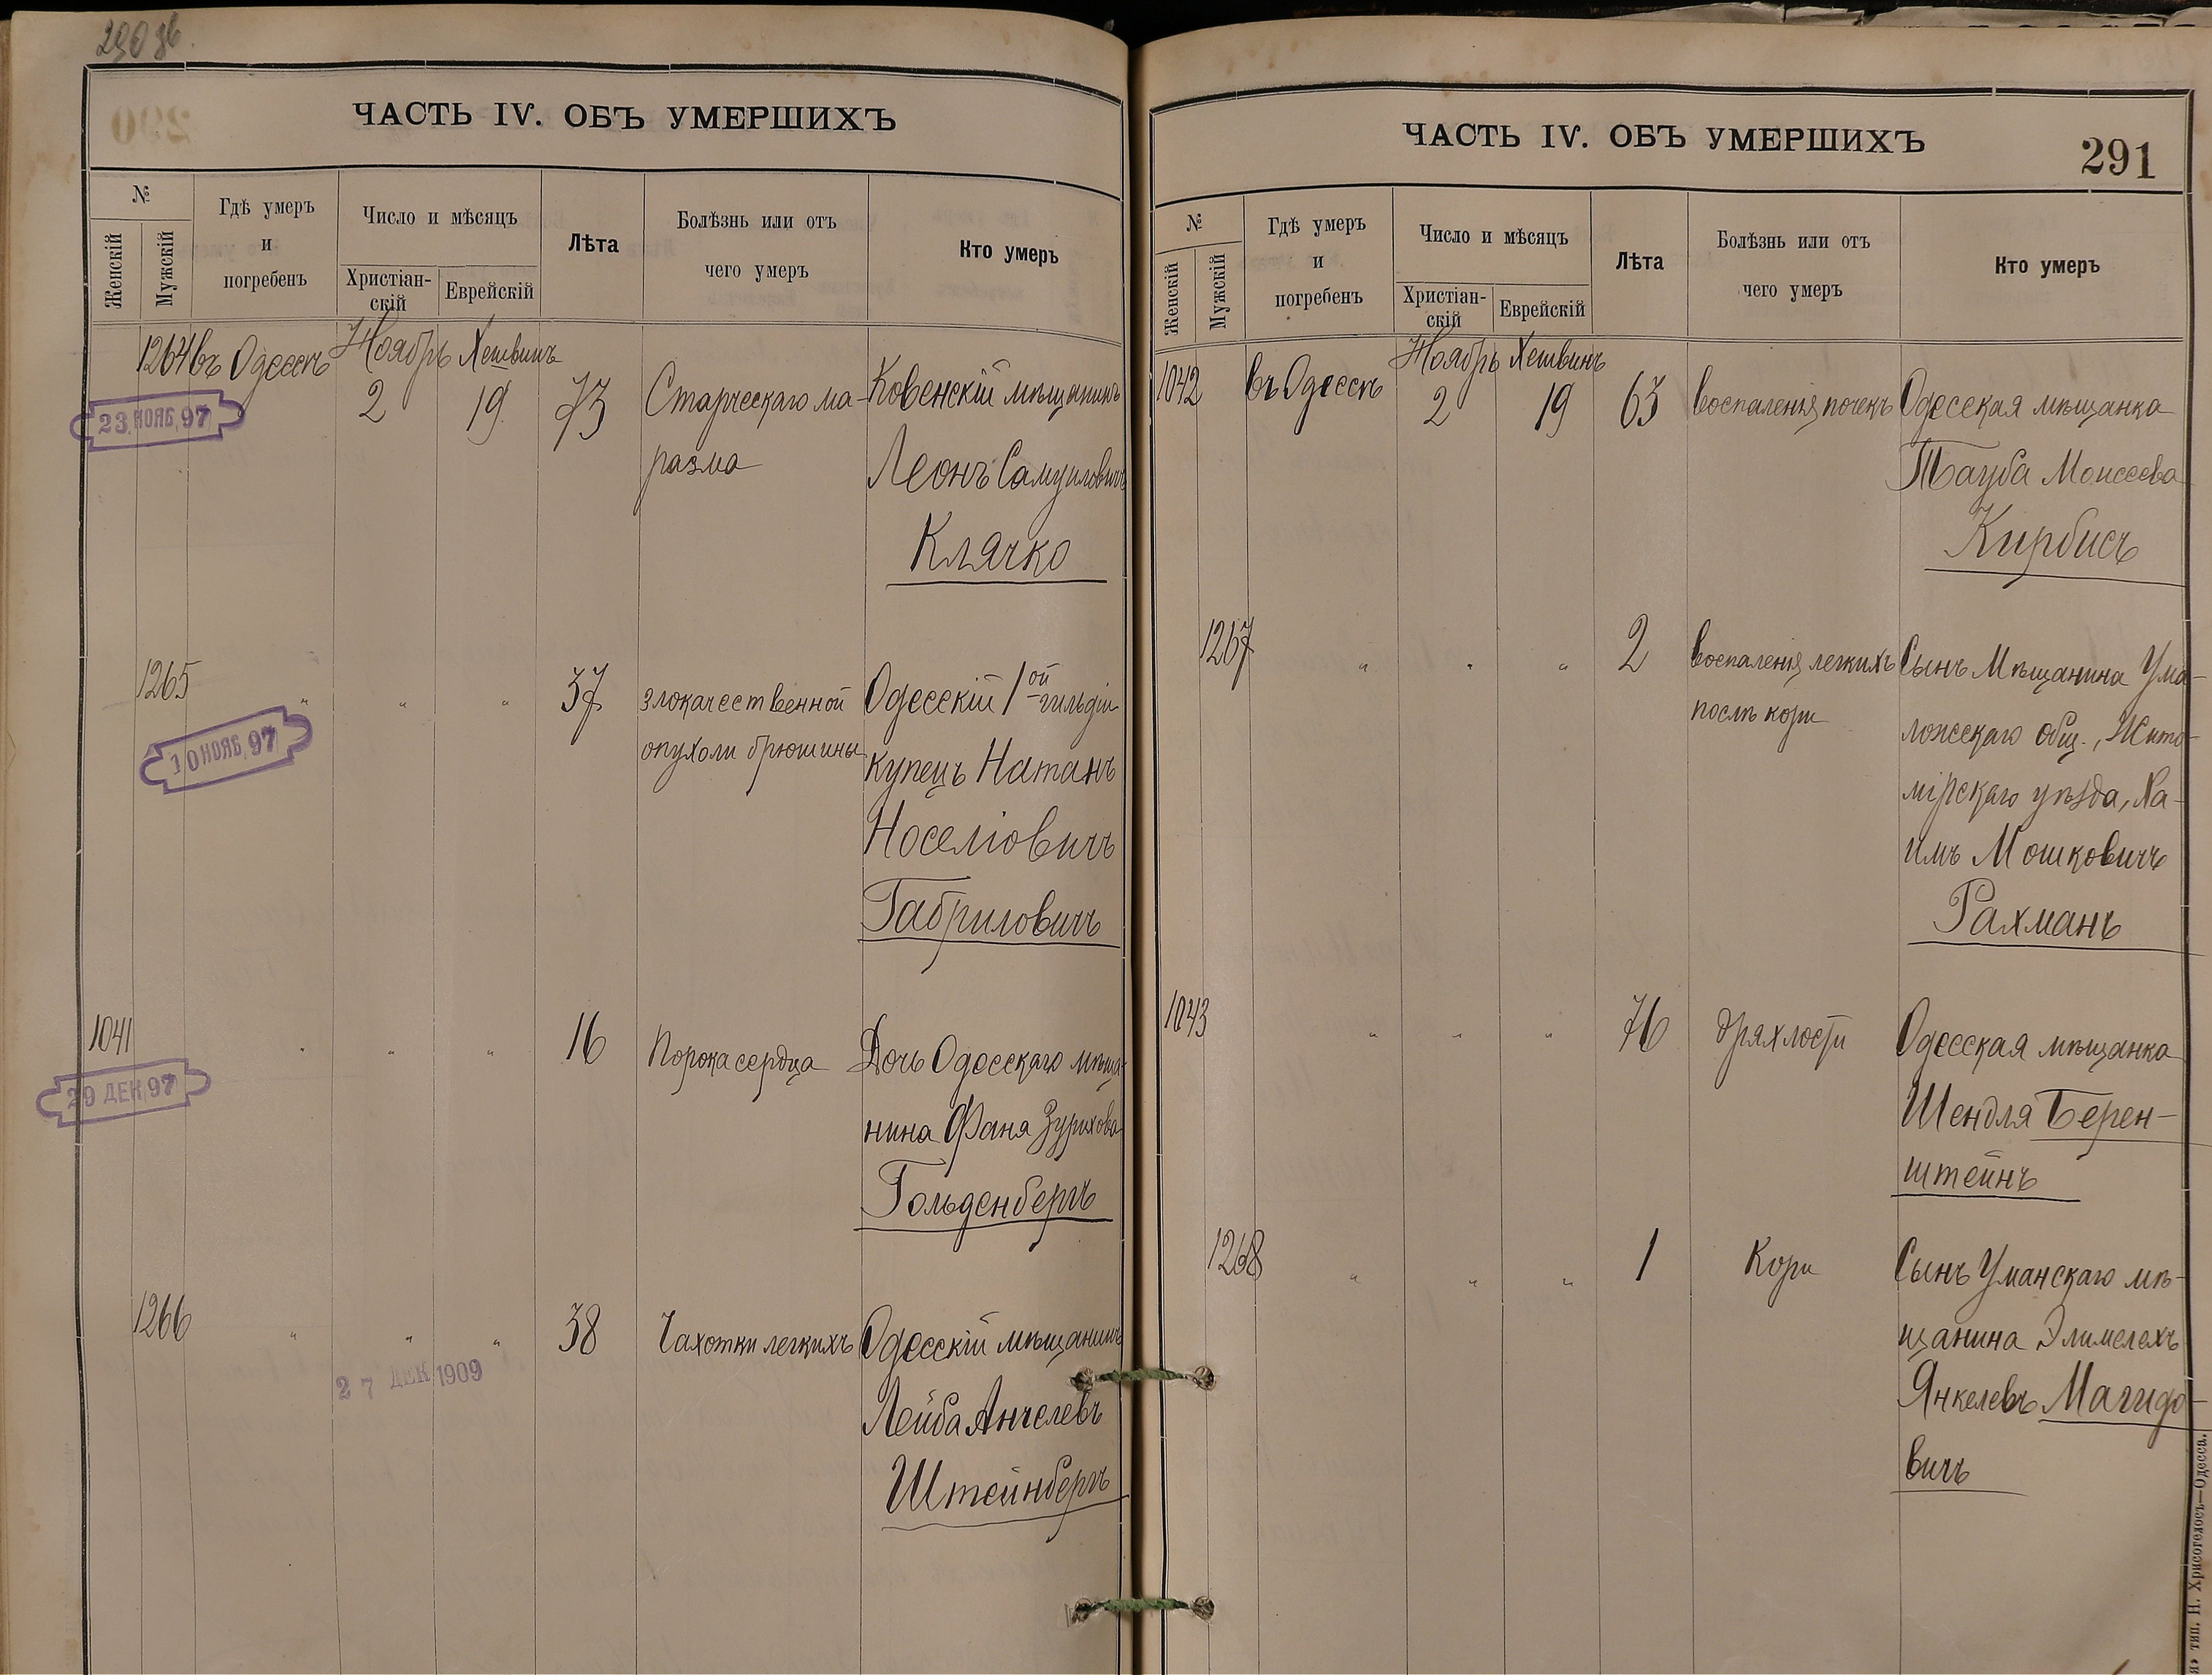 290 об
ЧАСТЬ IV. ОБЪ УМЕРШИХЪ
№
Женскій
Мужскій
Гдѣ умеръ
и
погребенъ
Число и мѣсяцъ
Христіан-
скій
Еврейскій
Лѣта
Болѣзнь или отъ
чего умеръ
Кто умеръ
1264 въ Одессѣ Ноябрь Хешвинъ
2 19 73 Старческаго ма- Ковенскій мѣщанинъ
23 НОЯБ 97
разма Леонъ Самуиловичъ
Клячко
1265 " " " 37 злокачественной Одесскій 1ой гильдіи
10 НОЯБ 97
опухоли брюшины купецъ Натанъ
Носеліовичъ
Габриловичъ
1041 " " " 16 Порока сердца Дочь Одесскаго мѣща-
29 ДЕК 97
нина Фаня
Гольденбергъ
1266 " " " 38 Чахотки легкихъ Одесскій мѣщанинъ
27 ДЕК 1909
Лейба Анчелевъ
Штейнбергъ
ЧАСТЬ IV. ОБЪ УМЕРШИХЪ
291
№
Женскій
Мужскій
Гдѣ умеръ
и
погребенъ
Число и мѣсяцъ
Христіан-
скій
Еврейскій
Лѣта
Болѣзнь или отъ
чего умеръ
Кто умеръ
Ноябрь Хешвинъ
1042 въ Одессѣ 2 19 63 воспаленія почекъ Одесская мѣщанка
Тауба Моисеева
Кирбисъ
1267 " " " 2 воспаленія легкихъ Сынъ Мѣщанина Ума-
послѣ кори ложскаго общ., Жито-
мірскаго уѣзда, Ха-
имъ Мошковичъ
Рахманъ
1043 " " " 76 дряхлости Одесская мѣщанка
Шендля Берен-
штейнъ
1268 " " " 1 Кори Сынъ Уманскаго мѣ-
щанина Элимелехъ
Янкелевъ Магидо-
вичъ
тип. Н. Хрисогелосъ—Одесса.